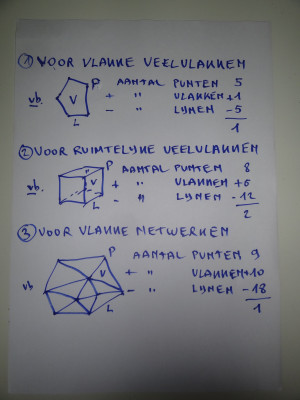 1 VOOR VLAKKE VEELVLAKKEN
P AANTAL PUNTEN 5
vb. V + " VLAKKEN +1
L - " LIJNEN -5
1
2 VOOR RUIMTELIJKE VEELVLAKKEN
P AANTAL PUNTEN 8
vb. V + " VLAKKEN +6
L - " LIJNEN -12
2
3 VOOR VLAKKE NETWERKEN
P AANTAL PUNTEN 9
vb V + " VLAKKEN +10
L - " LIJNEN -18
1